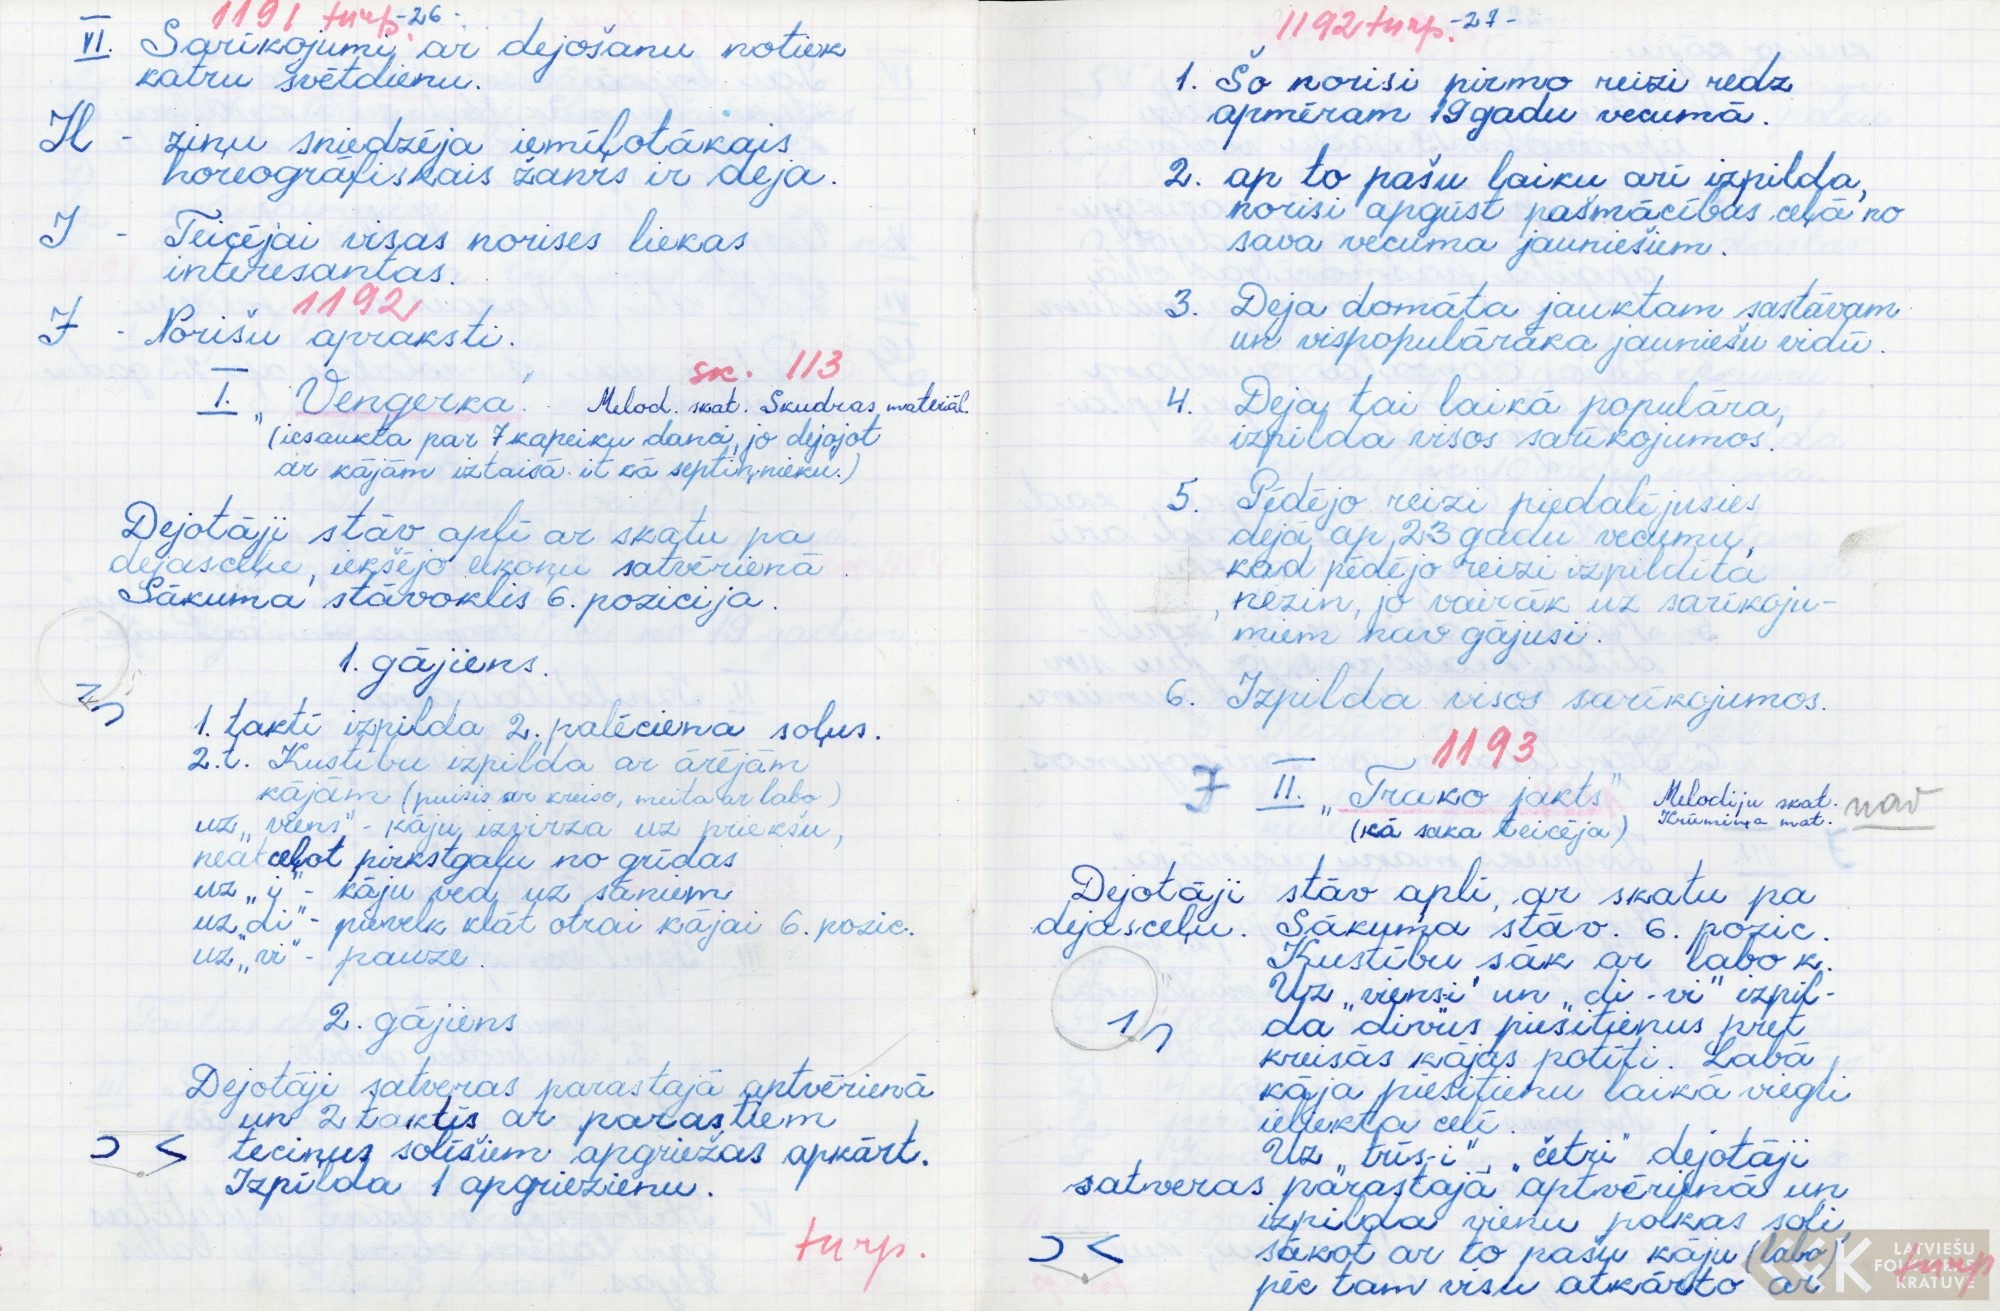 1191 turp. -26-
VI. Sarīkojumi ar dejošanu notiek
katru svētdienu.
H - ziņu sniedzēja iemīļotākais
horeogrāfiskais žanrs ir deja.
I - Teicējai visas norises liekas
interesantas.
1192
J - Norišu apraksti.
sk. 113
I. „Vengerka" Melod. skat. Skudras materiāl.
(iesaukta par 7 kapeiku danci, jo dejojot
ar kājām iztaisa it kā septiņnieku.)
Dejotāji stāv aplī ar skatu pa
dejasceļu, iekšējo elkoņu satvērienā.
Sākuma stāvoklis 6. pozīcija.
1. gājiens.
1. taktī izpilda 2. palēciena soļus.
2.t. Kustību izpilda ar ārējām
kājām (puisis ar kreiso, meita ar labo)
uz „viens" - kāju izvirza uz priekšu,
neatceļot pirkstgalu no grīdas
uz „i" - kāju ved uz sāniem
uz „di" - pievelk klāt otrai kājai 6. pozic.
uz „vi" - pauze.
2. gājiens
Dejotāji satveras parastajā aptvērienā
un 2 taktīs ar parastiem
teciņus solīšiem apgriežas apkārt.
Izpilda 1 apgriezienu.
turp.
1192 turp. -27-
1. Šo norisi pirmo reizi redz
apmēram 19 gadu vecumā.
2. ap to pašu laiku arī izpilda,
norisi apgūst pašmācības ceļā no
sava vecuma jauniešiem.
3. Deja domāta jauktam sastāvam
un vispopulārāka jauniešu vidū.
4. Deja tai laikā populāra,
izpilda visos sarīkojumos.
5. Pēdējo reizi piedalījusies
dejā ap 23 gadu vecumu,
kad pēdējo reizi izpildīta
nezin, jo vairāk uz sarīkoju-
miem nav gājusi.
6. Izpilda visos sarīkojumos.
1193
J II. „Trako jakts" Melodiju skat. nav
(kā saka teicēja) Krūmiņa mat.
Dejotāji stāv aplī, ar skatu pa
dejasceļu. Sākuma stāv. 6. pozic.
Kustību sāk ar labo k.
Uz „viens-i" un „di-vi" izpil-
da divus piesitienus pret
kreisās kājas potīti. Labā
kāja piesitienu laikā viegli
ieliekta celī.
Uz „trīs-i", „četri" dejotāji
satveras parastajā aptvērienā un
izpilda vienu polkas soli,
sākot ar to pašu kāju (labo)
pēc tam visu atkārto ar
turp
LATVIEŠU
FOLKLORAS
KRĀTUVE